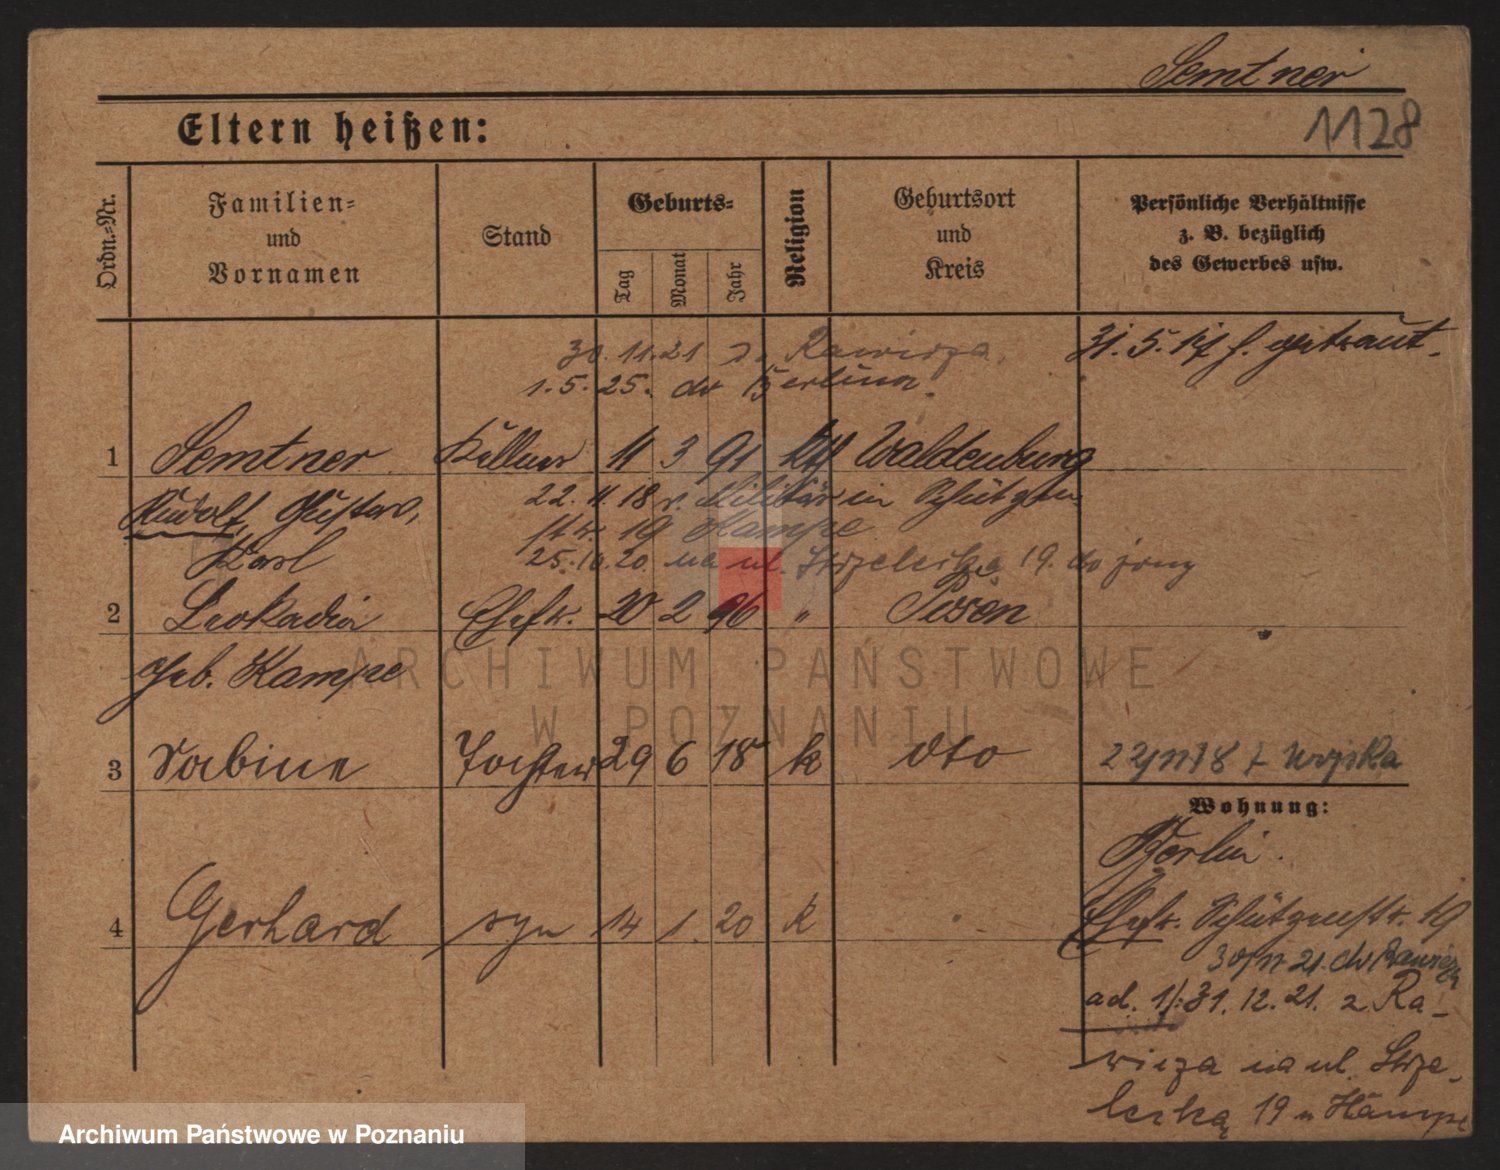 Semtner
1128
Eltern heißen:
Ordn.-Nr.
Familien-
und
Vornamen
Stand
Geburts-
Tag
Monat
Jahr
Religion
Geburtsort
und
Kreis
Persönliche Verhältnisse
z. B. bezüglich
des Gewerbes usw.
30. 11. 21 z. Rawicza.
31. 5. 17 getraut.
1. 5. 25. do Berlina.
1 Semtner Kellner 11 3 91 kth Waldenburg
Rudolf, Gustav,
22. 11. 18 v. Militär in Schützen-
str. 19 Kampe
Karl
25. 10. 20 na ul. Strzelecka 19. do żony
2 Leokadia Ehefr. 20 2 96 " Posen
geb. Kampe
ARCHIWUM PAŃSTWOWE
W POZNANIU
3 Sabine Tochter 29 6 18 k dto
22/11 18 z wojska
Wohnung:
Berlin.
4 Gerhard syn 14 1. 20 k
Ehefr. Schützenstr. 19
30/11 21. do Rawicza
ad. 1/: 31. 12. 21. z Ra-
wicza na ul. Strze-
lecką 19 u Kampe
Archiwum Państwowe w Poznaniu